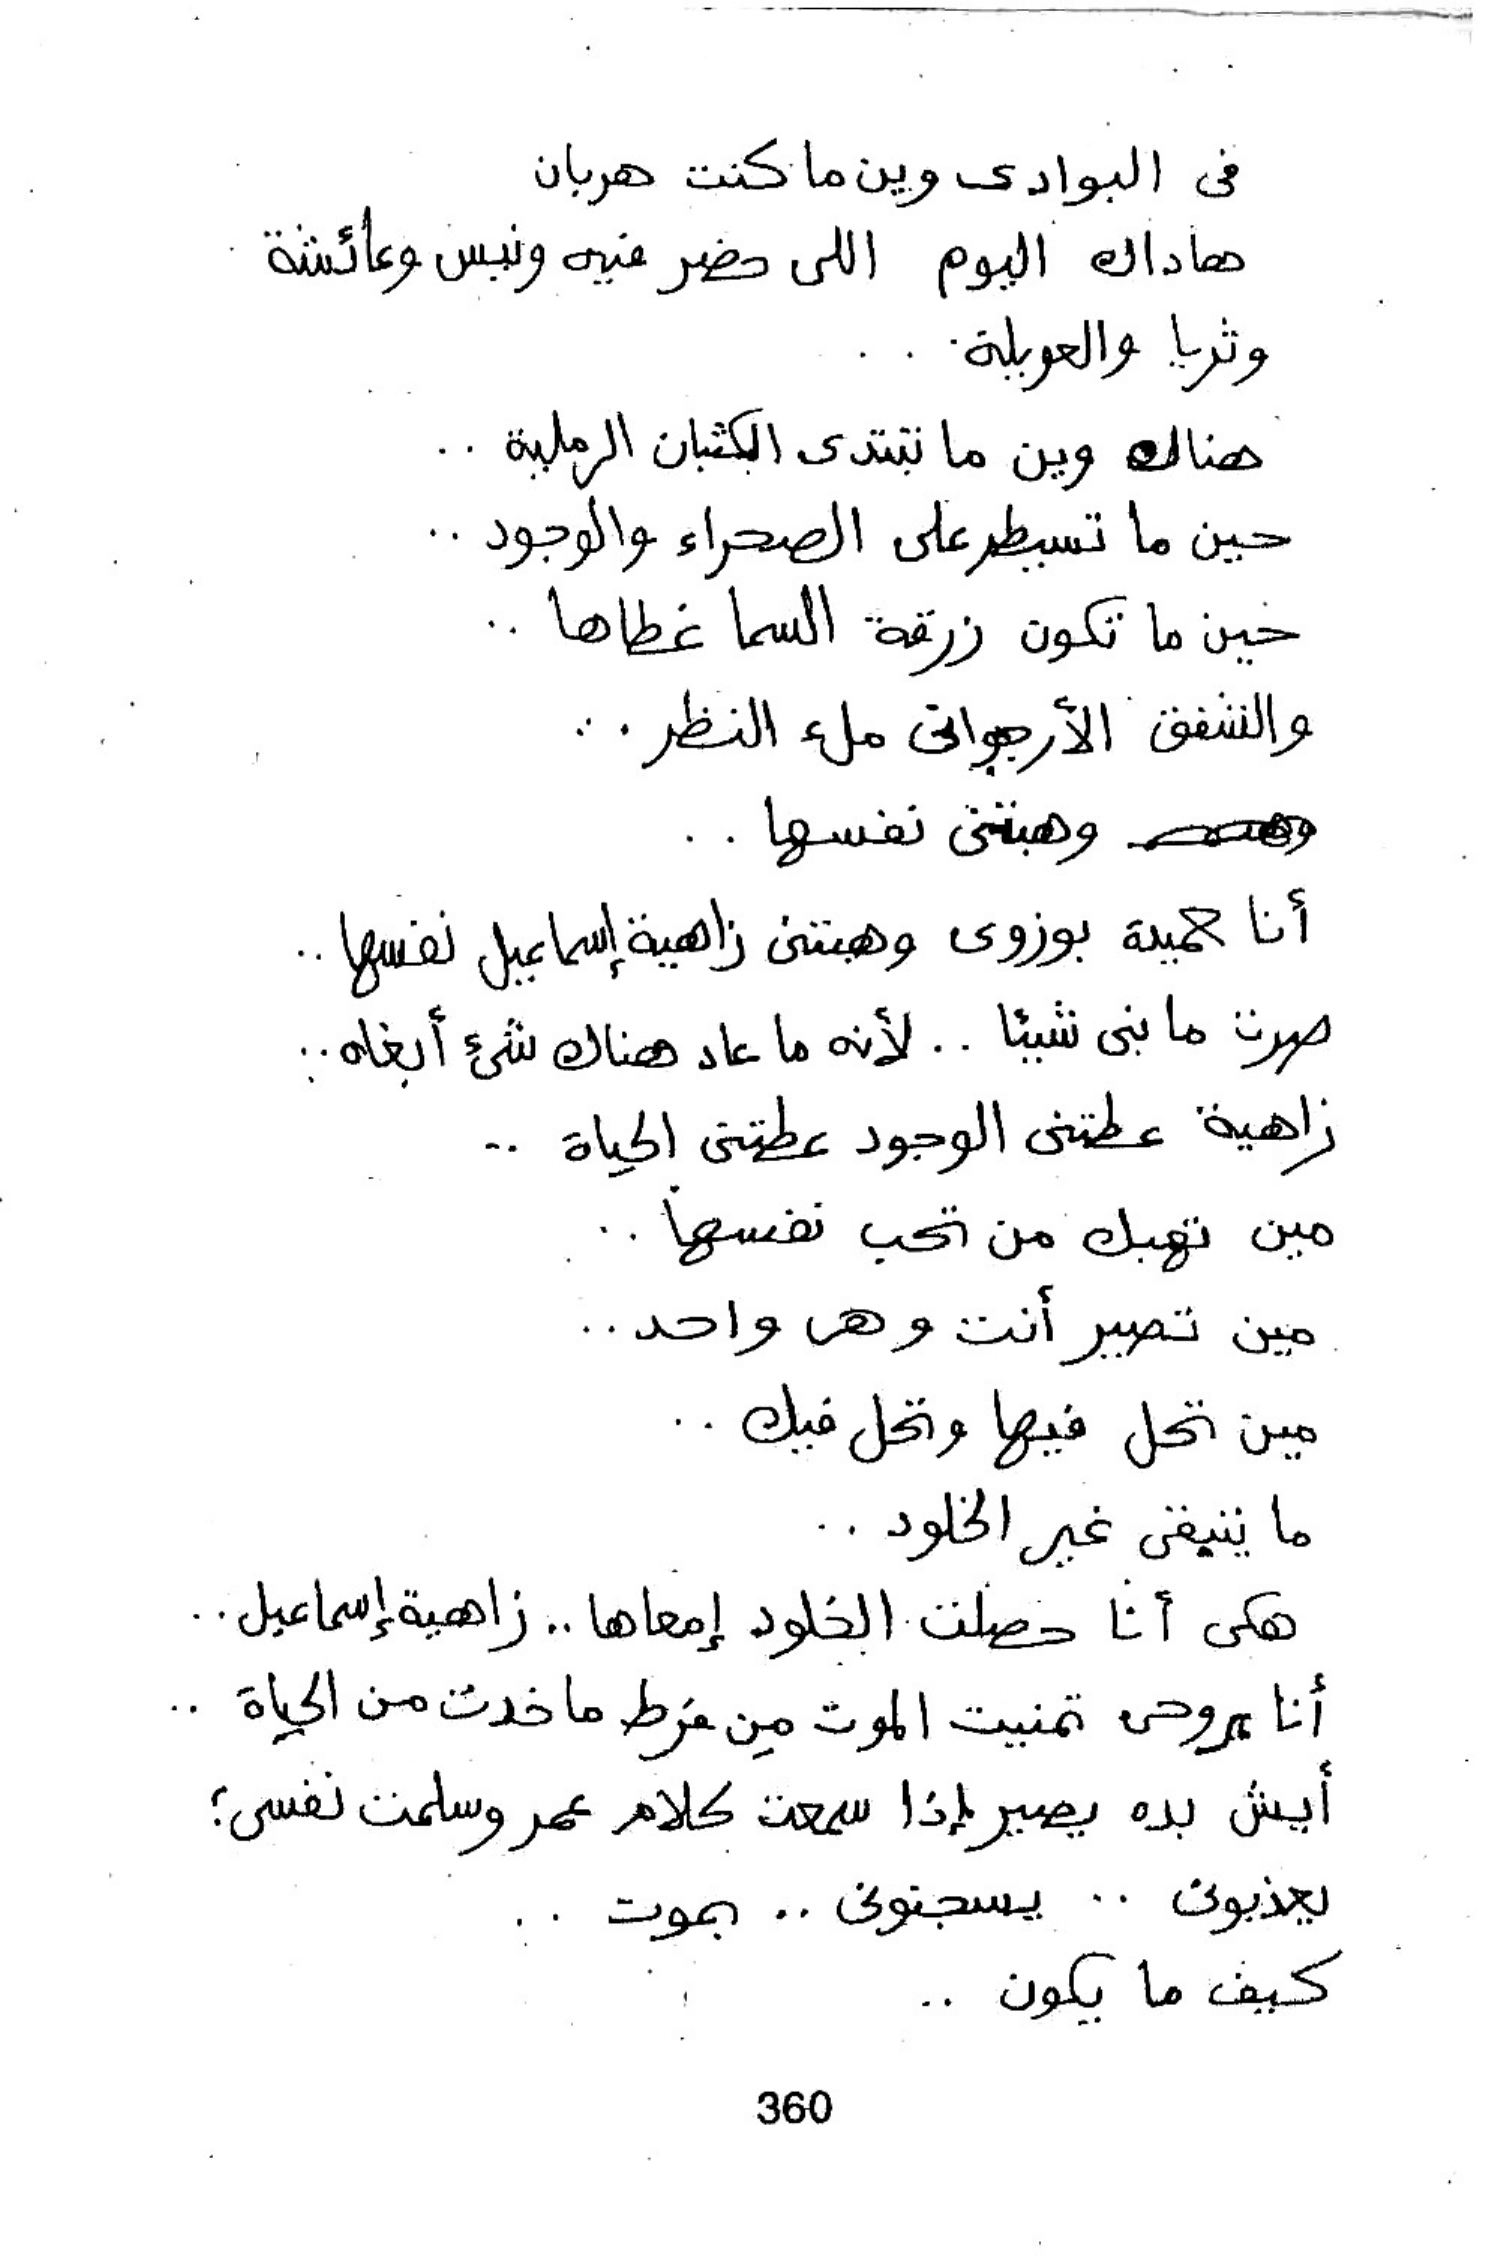 فى البوادى وين ما كنت هربان
هاداك اليوم اللى حضر فيه ونيس وعائشة
وثريا والعويلة . .
هناك وين ما تبتدى الكثبان الرملية ..
حين ما تسيطر على الصحراء والوجود ..
حين ما تكون زرقة السما غطاها ..
والشفق الأرجوانى ملء النظر ..
وهبتنى نفسها ..
أنا حميدة بوزوى وهبتنى زاهية إسماعيل نفسها ..
صرت ما نبى شيئا .. لأنه ما عاد هناك شئ أبغاه ..
زاهية عطتنى الوجود عطتنى الحياة ..
مين تهبك من تحب نفسها ..
مين تصير أنت وهى واحد ..
مين تحل فيها وتحل فيك ..
ما يتبقى غير الخلود ..
هكى أنا حصلت الخلود إمعاها .. زاهية إسماعيل ..
أنا بروحى تمنيت الموت مِن فرط ما خدت من الحياة ..
أيش بده يصير إذا سمعت كلام عمر وسلمت نفسى ؟
يعذبونى .. يسجنونى .. بموت ..
كيف ما يكون ..
360